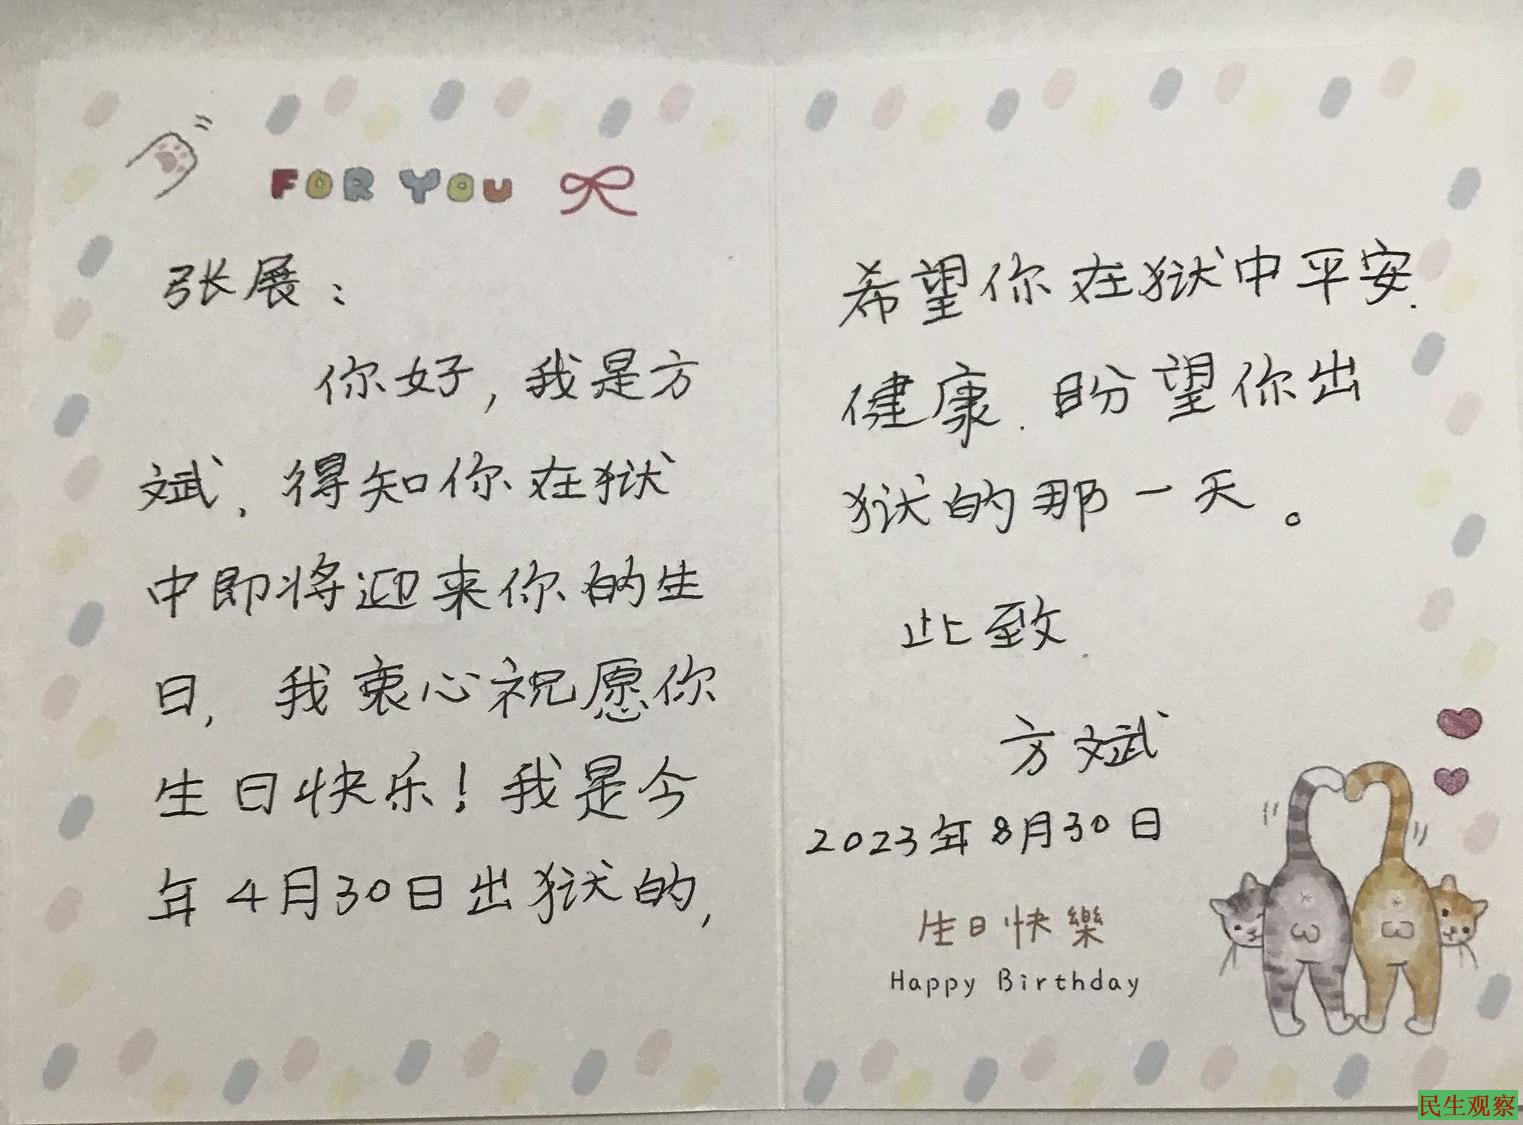 FOR YOU
张展：
你好，我是方
斌，得知你在狱
中即将迎来你的生
日，我衷心祝愿你
生日快乐！我是今
年4月30日出狱的，
希望你在狱中平安.
健康.盼望你出
狱的那一天。
此致
方斌
2023年8月30日
生日快樂
Happy Birthday
民生观察